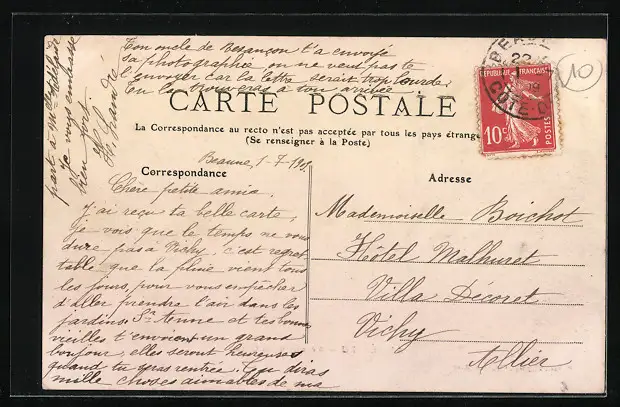 Ton oncle de Besançon t'a envoyé
sa photographie, on ne veut pas te
l'envoyer car la lettre serait trop lourde,
tu la trouveras à ton arrivée.
part à Mlle
Je vous embrasse
bien fort
CARTE POSTALE
La Correspondance au recto n'est pas acceptée par tous les pays étrange
(Se renseigner à la Poste)
REPUBLIQUE FRANÇAISE
10c
POSTES
22
COTE D
10
Correspondance
Beaune, 1-7-190
Chère petite amia,
J'ai reçu ta belle carte,
je vois que le temps ne vous
dure pas à Vichy, c'est regret
table que la pluie vient tous
les jours, pour vous empêcher
d'aller prendre l'air dans les
jardins. Sr Anne et tes bonnes
vieilles t'envoient un grand
bonjour, elles seront heureuses
quand tu seras rentrée. Tu diras
mille choses aimables de ma
Adresse
Mademoiselle Boichot
Hôtel Malhuret
Villa Décoret
Vichy
Allier